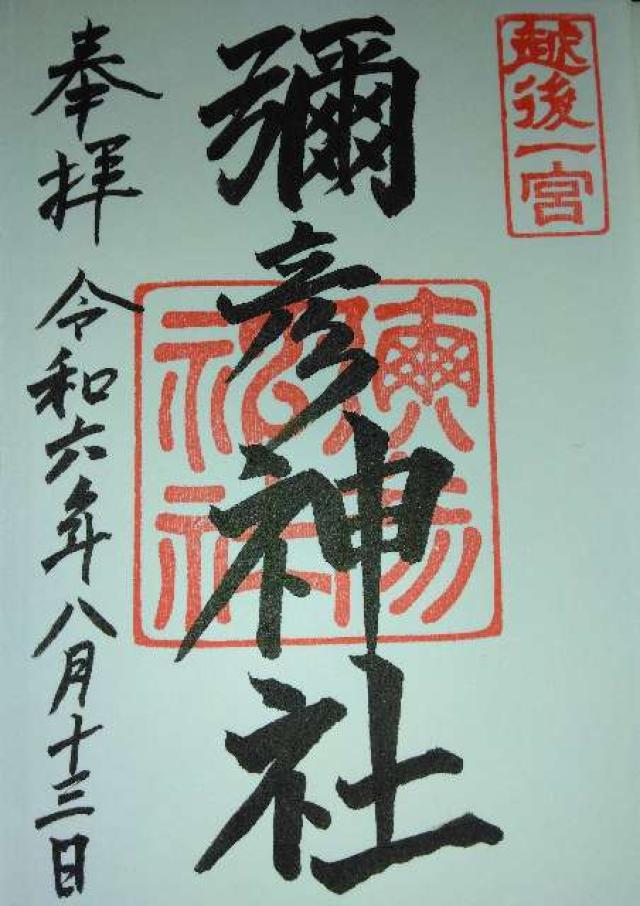 越後一宮
彌彦神社
奉拝 令和六年八月十三日